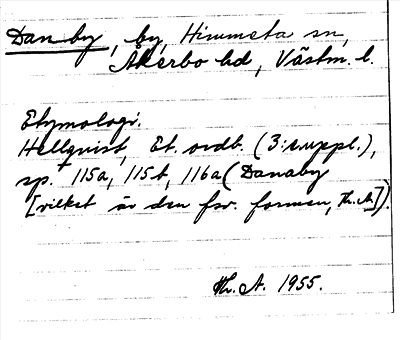 Danby, by, Himmeta sn,
Åkerbo hd, Västm. l.
Etymologi.
Hellquist, Et. ordb. (3:e uppl.),
sp. 115a, 115b, 116a (Danaby
[vilket är den fsv. formen, Th. A.]).
Th. A. 1955.